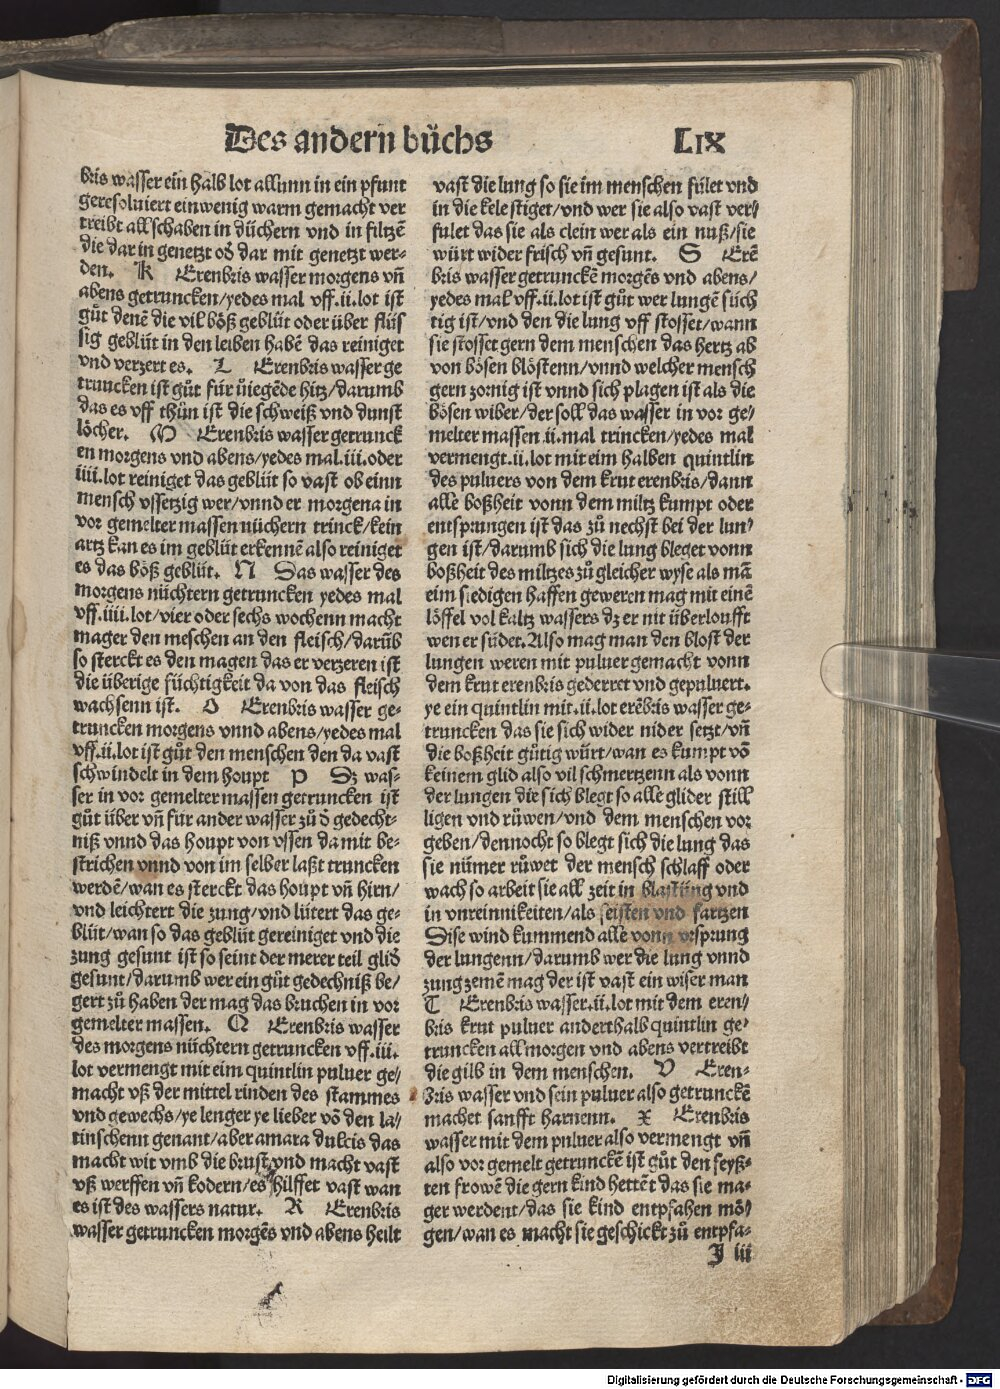 Des andern bůchs LIX
bris wasser ein halb lot allunn in ein pfunt
geresoluiert einwenig warm gemacht ver
treibt all schaben in důchern vnd in filtzē
die dar in genetzt od̕ dar mit genetzt wer-
den. K Erenbris wasser morgens vn̄
abens getruncken/yedes mal vff.ii.lot ist
gůt denē die vil böß geblůt oder über flüs
sig geblüt in den leiben habē das reiniget
vnd verzert es. L Erenbris wasser ge
truncken ist gůt für üiegēde hitz/darumb
das es vff thůn ist die schweiß vnd dunst
löcher. M Erenbris wasser getrunck
en morgens vnd abens/yedes mal.iii.oder
iiii.lot reiniget das geblüt so vast ob einn
mensch vssetzig wer/vnnd er morgena in
vor gemelter massen nüchern trinck/kein
artz kan es im geblüt erkennē also reiniget
es das böß geblüt. N Das wasser des
morgens nüchtern getruncken yedes mal
vff.iiii.lot/vier oder sechs wochenn macht
mager den meschen an den fleisch/darūb
so sterckt es den magen das er verzeren ist
die überige füchtigkeit da von das fleisch
wachsenn ist. O Erenbris wasser ge-
truncken morgens vnnd abens/yedes mal
vff.ii.lot ist gůt den menschen den da vast
schwindelt in dem houpt P Dz was-
ser in vor gemelter massen getruncken ist
gůt über vn̄ für ander wasser zů d̕ gedecht-
niß vnnd das houpt von vssen da mit be-
strichen vnnd von im selber laßt truncken
werdē/wan es sterckt das houpt vn̄ hirn/
vnd leichtert die zung/vnd lütert das ge-
blüt/wan so das geblüt gereiniget vnd die
zung gesunt ist so seint der merer teil glid̕
gesunt/darumb wer ein gůt gedechniß be/
gert zů haben der mag das bruchen in vor
gemelter massen. Q Erenbris wasser
des morgens nüchtern getruncken vff.iii.
lot vermengt mit eim quintlin puluer ge/
macht vß der mittel rinden des stammes
vnd gewechs/ye lenger ye lieber vō den la/
tinschenn genant/aber amara dulcis das
macht wit vmb die brust vnd macht vast
vß werffen vn̄ kodern/es hilffet vast wan
es ist des wassers natur. R Erenbris
wasser getruncken morgēs vnd abens heilt
vast die lung so sie im menschen fület vnd
in die kele stiget/vnd wer sie also vast ver/
fulet das sie als clein wer als ein nuß/sie
würt wider frisch vn̄ gesunt. S Erē
bris wasser getrunckē morgēs vnd abens/
yedes mal vff.ii.lot ist gůt wer lungē süch
tig ist/vnd den die lung vff stosset/wann
sie stosset gern dem menschen das hertz ab
von bösen blöstenn/vnnd welcher mensch
gern zornig ist vnnd sich plagen ist als die
bösen wiber/der soll das wasser in vor ge/
melter massen.ii.mal trincken/yedes mal
vermengt.ii.lot mit eim halben quintlin
des puluers von dem krut erenbris/dann
alle boßheit vonn dem miltz kumpt oder
entsprungen ist das zů nechst bei der lun/
gen ist/darumb sich die lung bleget vonn
boßheit des miltzes zů gleicher wyse als mā
eim siedigen haffen geweren mag mit einē
löffel vol kaltz wassers dz er nit überloufft
wen er süder. Also mag man den blost der
lungen weren mit puluer gemacht vonn
dem krut erenbris gederret vnd gepuluert.
ye ein quintlin mit.ii.lot erēbris wasser ge-
truncken das sie sich wider nider setzt/vn̄
die boßheit gütig würt/wan es kumpt vō
keinem glid also vil schmertzenn als vonn
der lungen die sich blegt so alle glider still
ligen vnd rüwen/vnd dem menschen vor
geben/dennocht so blegt sich die lung das
sie nümer rüwet der mensch schlaff oder
wach so arbeit sie all zeit in blastüng vnd
in vnreinnikeiten/als feisten vnd fartzen
Dise wind kummend alle vonn vrsprung
der lungenn/darumb wer die lung vnnd
zung zemē mag der ist vast ein wiser man
T Erenbris wasser.ii.lot mit dem eren/
bris krut puluer anderthalb quintlin ge-
truncken all morgen vnd abens vertreibt
die gilb in dem menschen. V Eren-
bris wasser vnd sein puluer also getrunckē
machet sanfft harnenn. X Erenbris
wasser mit dem puluer also vermengt vn̄
also vor gemelt getrunckē ist gůt den feyß-
ten frowē die gern kind hettēt das sie ma-
ger werdent/das sie kind entpfahen mö/
gen/wan es macht sie geschickt zů entpfa-
J iii
Digitalisierung gefördert durch die Deutsche Forschungsgemeinschaft - DFG